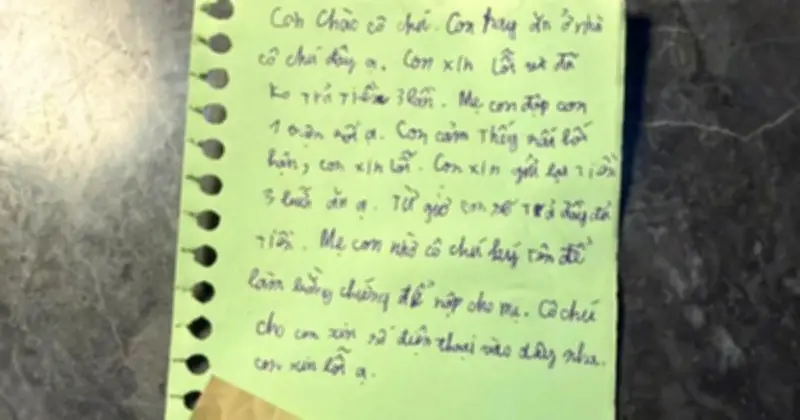 Con chào cô chú. Con hay ăn ở nhà
cô chú đây ạ. Con xin lỗi vì đã
ko trả tiền 3 lần. Mẹ con đập con
1 trận rồi ạ. Con cảm thấy rất hối
hận, con xin lỗi. Con xin gửi lại tiền
3 buổi ăn ạ. Từ giờ con sẽ trả đầy đủ
tiền. Mẹ con nhờ cô chú ký tên để
làm bằng chứng để nộp cho mẹ. Cô chú
cho con xin số điện thoại vào đây nha.
con xin lỗi ạ.